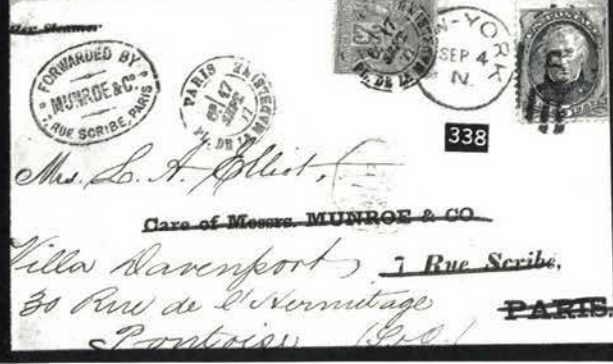 Steamer
FORWARDED BY
MUNROE & Co.
7 RUE SCRIBE, PARIS
PARIS
17
SEPT
PL. DE LA MADELEINE
17
SEPT
PL. DE LA
NEW-YORK
SEP 4
N.
338
Mrs. L. A. Elliot,
Care of Messrs. MUNROE & CO
Villa Davenport 7 Rue Scribe,
30 Rue de l'Hermitage PARIS.
Pontoise